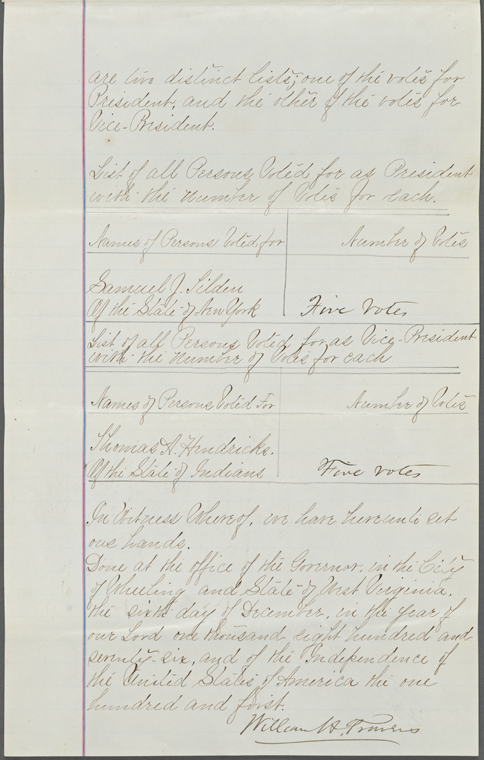 are two distinct lists; one of the votes for
President, and the other of the votes for
Vice-President.
List of all Persons Voted for as President
with the number of Votes for each.
Names of Persons Voted for Number of Votes
Samuel J. Tilden
Of the State of New York Five Votes
List of all Persons Voted for as Vice-President
with the number of Votes for each
Names of Persons Voted for Number of Votes
Thomas A. Hendricks.
Of the State of Indiana Five Votes
In Witness Whereof, we have hereunto set
our hands.
Done at the office of the Governor, in the City
of Wheeling and State of West Virginia.
the sixth day of December, in the year of
our Lord one thousand eight hundred and
seventy-six, and of the Independence of
the United States of America the one
hundred and first.
William H. Travers